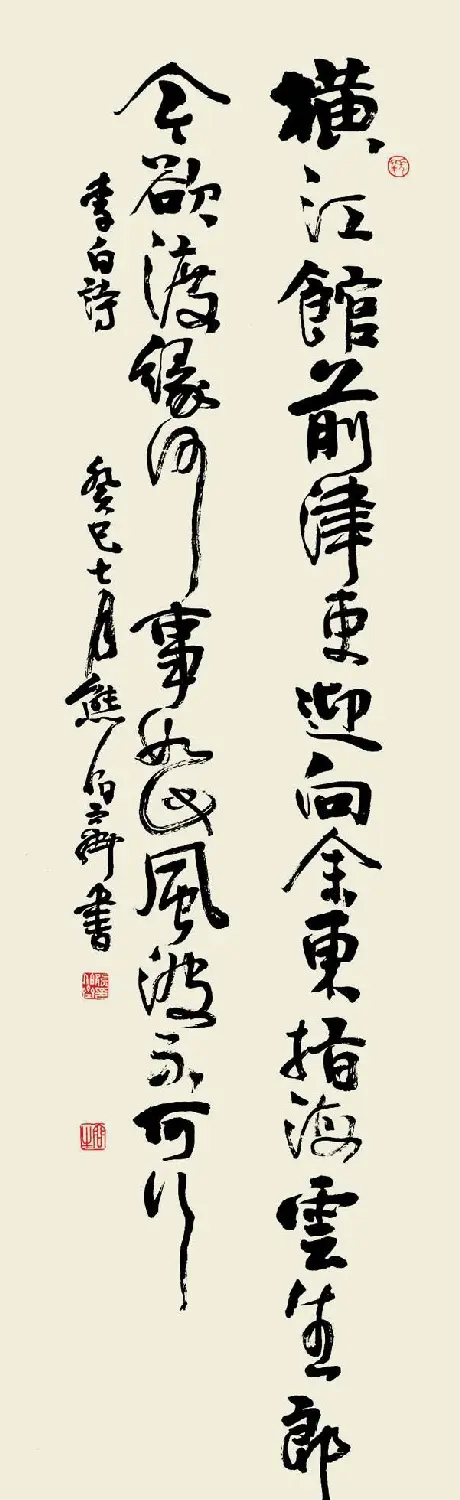 橫江館前津吏迎向余東指海雲生郎
今欲渡緣何事如此風波不可行
李白詩 癸巳七月熊伯齊書